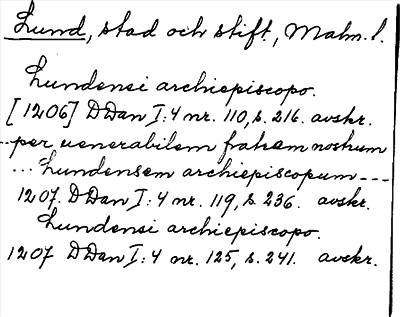 Lund, stad och stift, Malm. l.
Lundensi archiepiscopo.
[1206] DDan I:4 nr. 110, s. 216. avskr.
--per uenerabilem fratrem nostrum
... Lundensem archiepiscopum ---
1207. DDan I:4 nr. 119, s. 236. avskr.
Lundensi archiepiscopo.
1207 DDan I:4 nr. 125, s. 241. avskr.